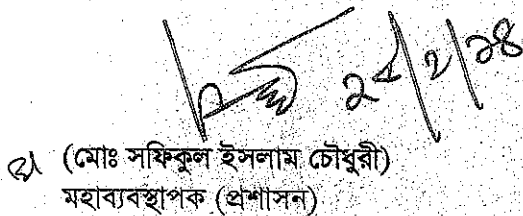 (মোঃ সফিকুল ইসলাম চৌধুরী)
মহাব্যবস্থাপক (প্রশাসন)